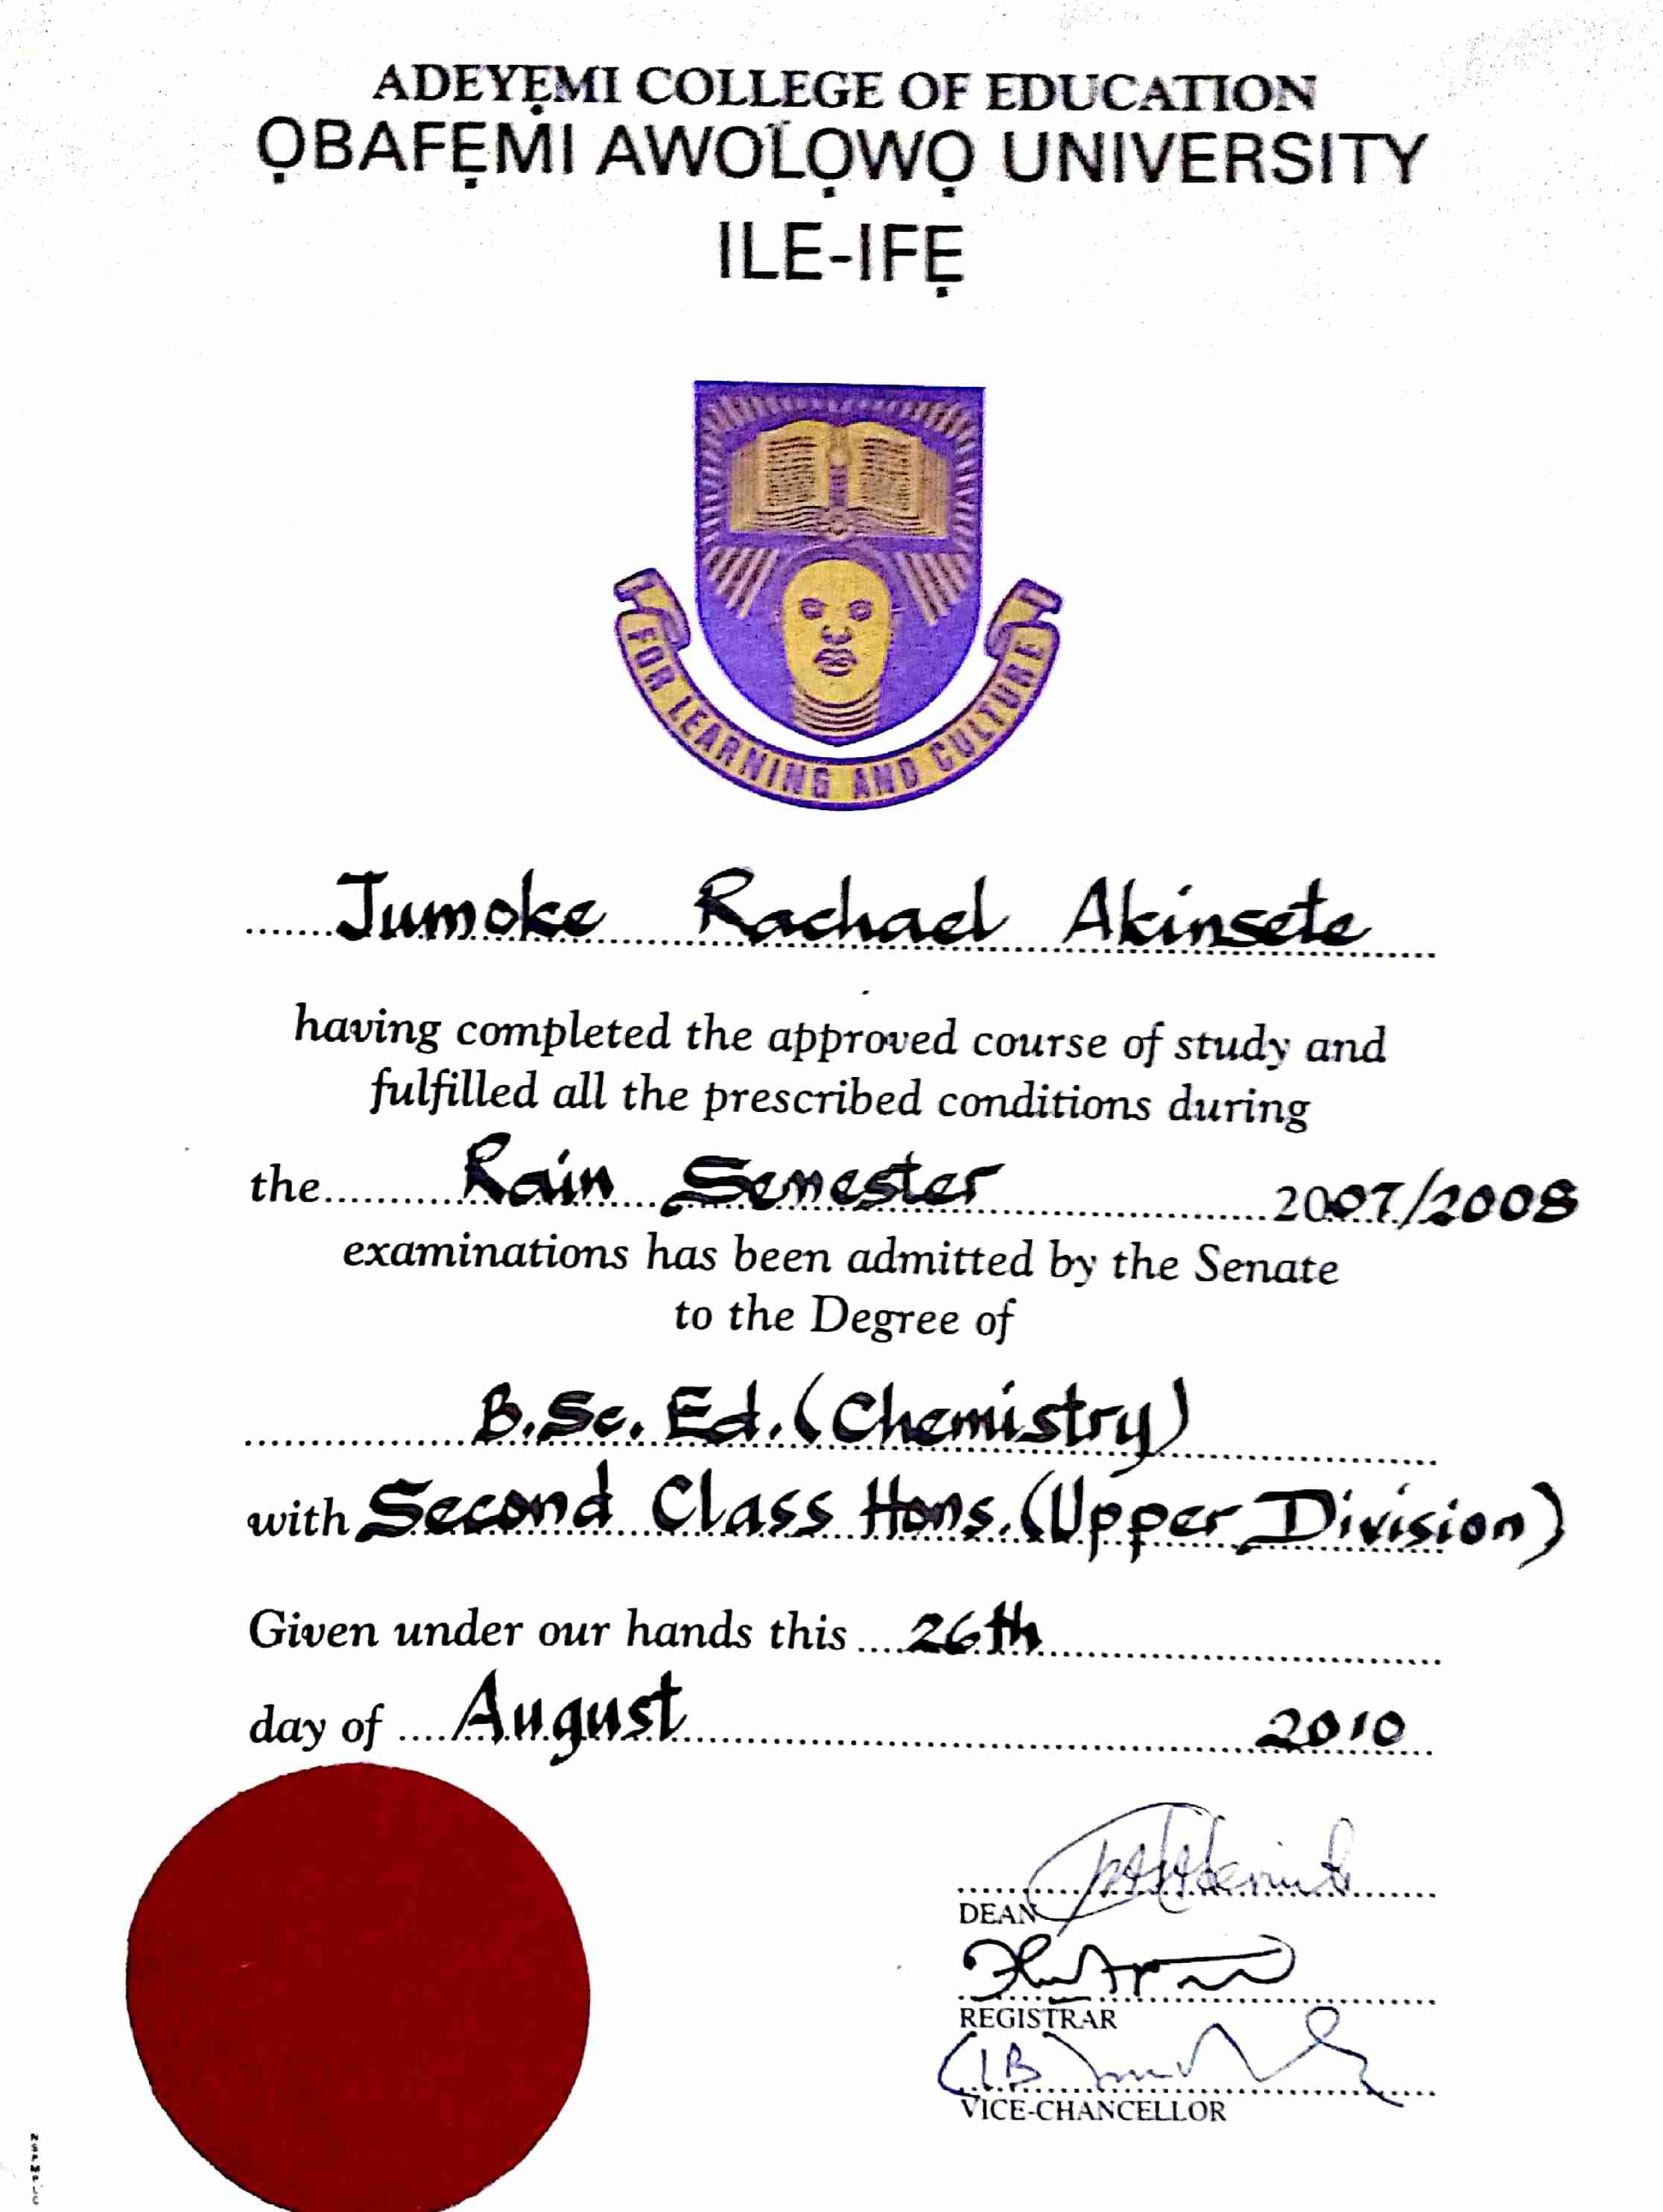 ADEYẸMI COLLEGE OF EDUCATION
ỌBAFẸMI AWOLỌWỌ UNIVERSITY
ILE-IFẸ
FOR LEARNING AND CULTURE
Jumoke Rachael Akinsete
having completed the approved course of study and
fulfilled all the prescribed conditions during
the Rain Semester 2007/2008
examinations has been admitted by the Senate
to the Degree of
B.Sc. Ed. (Chemistry)
with Second Class Hons. (Upper Division)
Given under our hands this 26th
day of August 2010
DEAN
REGISTRAR
VICE-CHANCELLOR